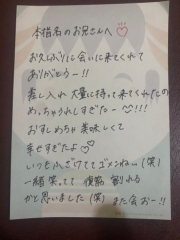 本指名のお兄さんへ♡
お久しぶりに会いに来てくれて
ありがとうー!!
差し入れ 大量に持って来てくれたの
め、ちゃうれしすぎたー^^!!!
おすしめちゃ美味しくて
幸せすぎたよ♡
いつもふざけててゴメンねぃ(笑)
一緒 笑ってて 腹筋 割れる
かと思いました(笑) また会おー!!